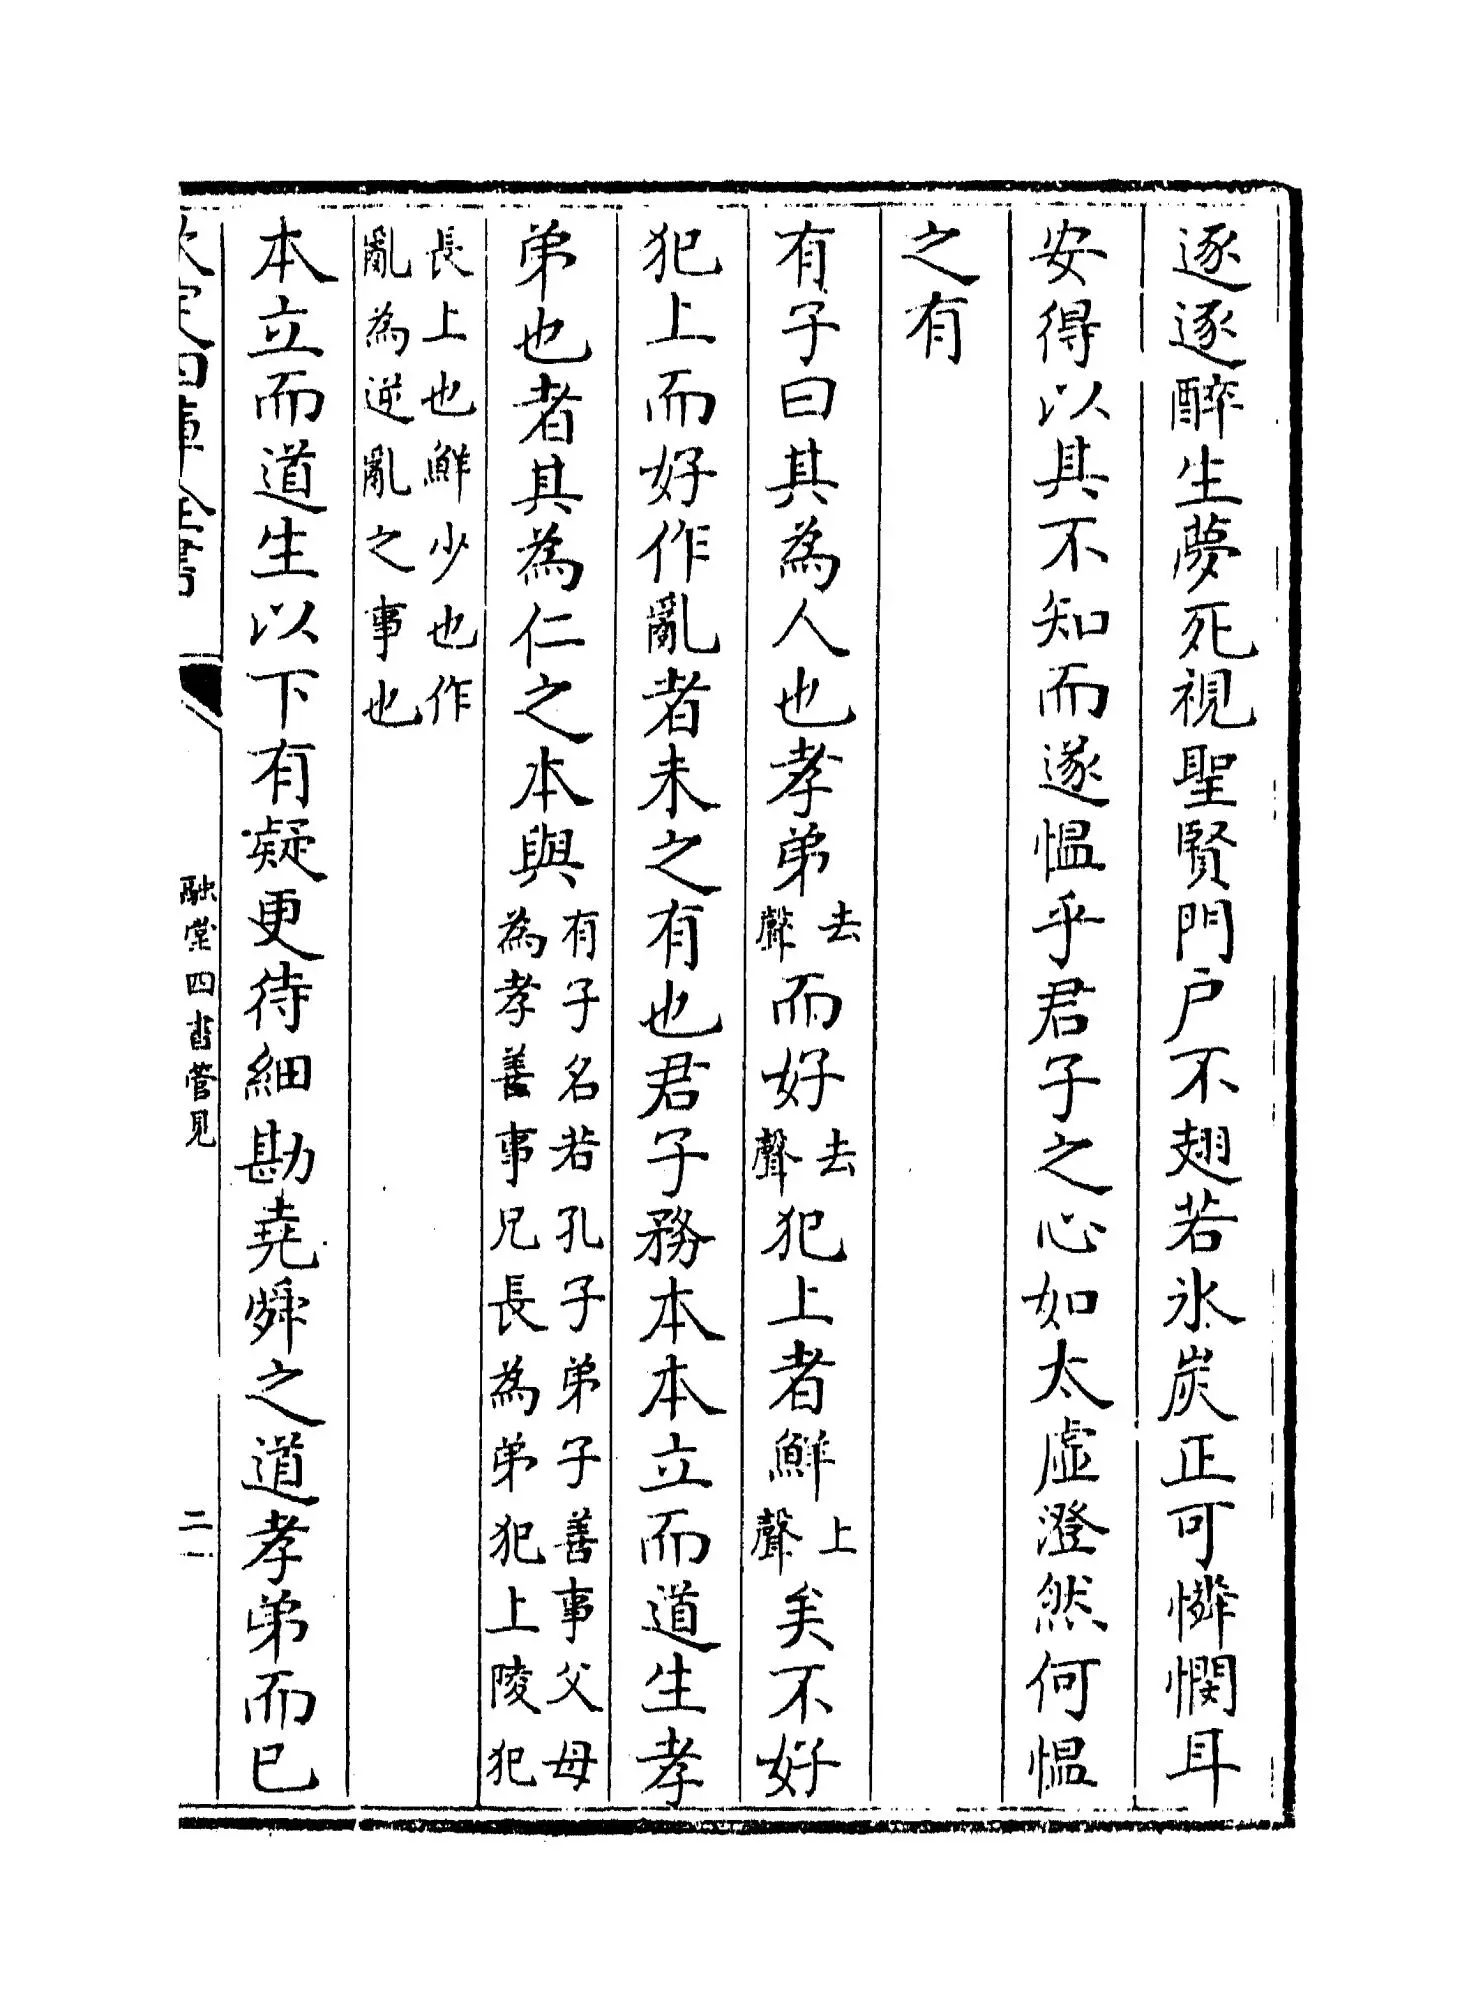 逐逐醉生夢死視聖賢門户不翅若氷炭正可憐憫耳
安得以其不知而遂愠乎君子之心如太虚澄然何愠
之有
有子曰其為人也孝弟去聲而好去聲犯上者鮮上聲矣不好
犯上而好作亂者未之有也君子務本本立而道生孝
弟也者其為仁之本與有子名若孔子弟子善事父母為孝善事兄長為弟犯上陵犯
長上也鮮少也作亂為逆亂之事也
本立而道生以下有凝更待細勘堯舜之道孝弟而已
欽定四庫全書
融堂四書管見
二